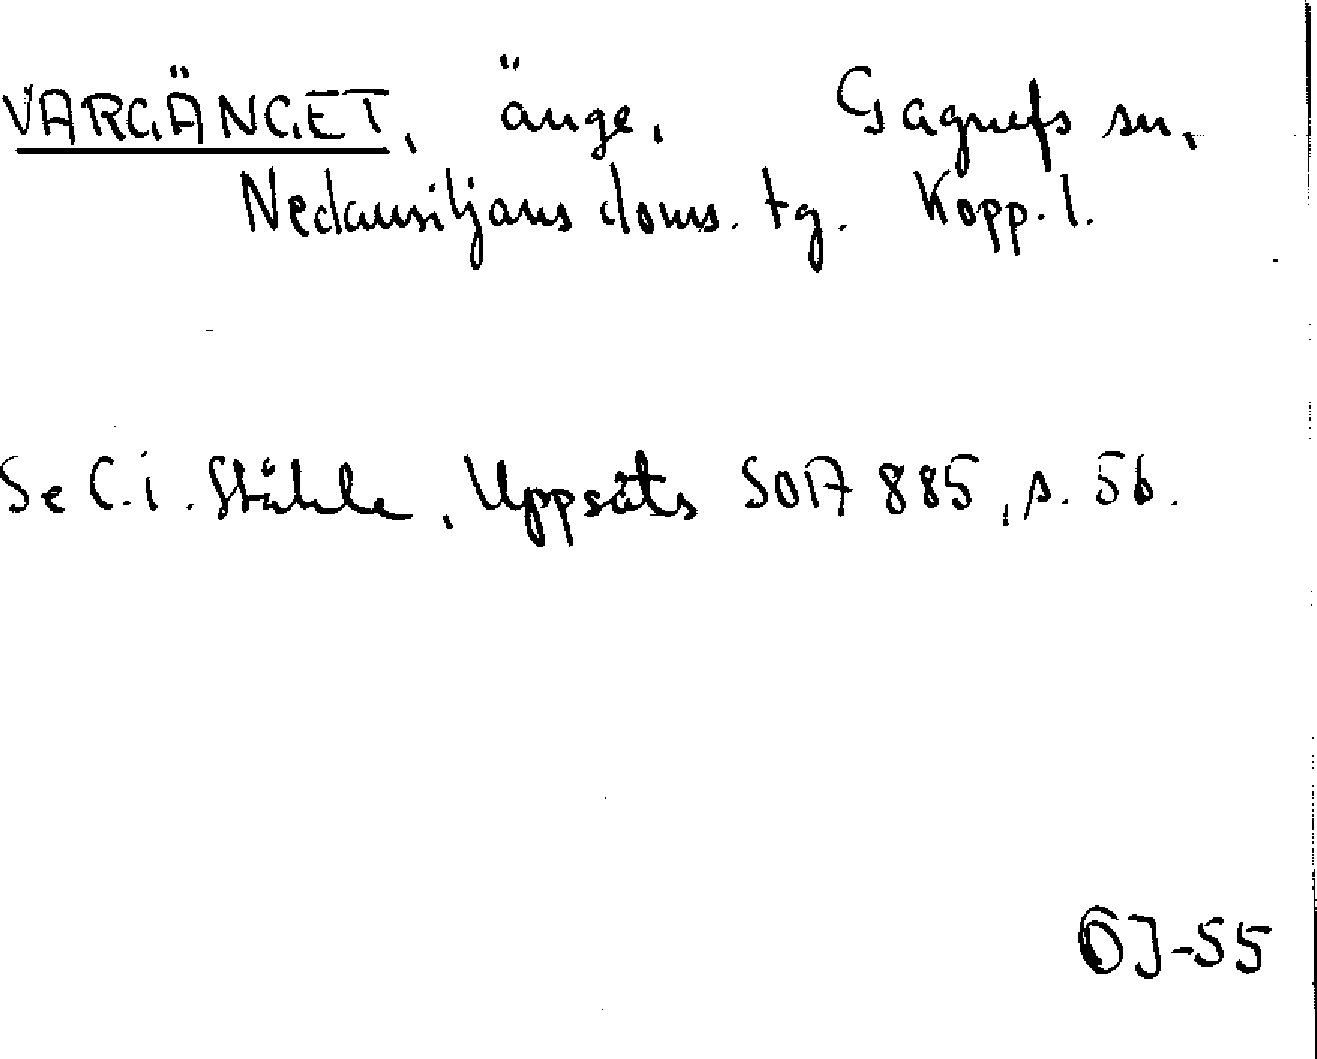 VARGÄNGET, änge, Gagnefs sn,
Nedansiljans doms. tg. Kopp. l.
Se C. I. Ståhle, Uppsats SOA 885, s. 56.
OJ-55